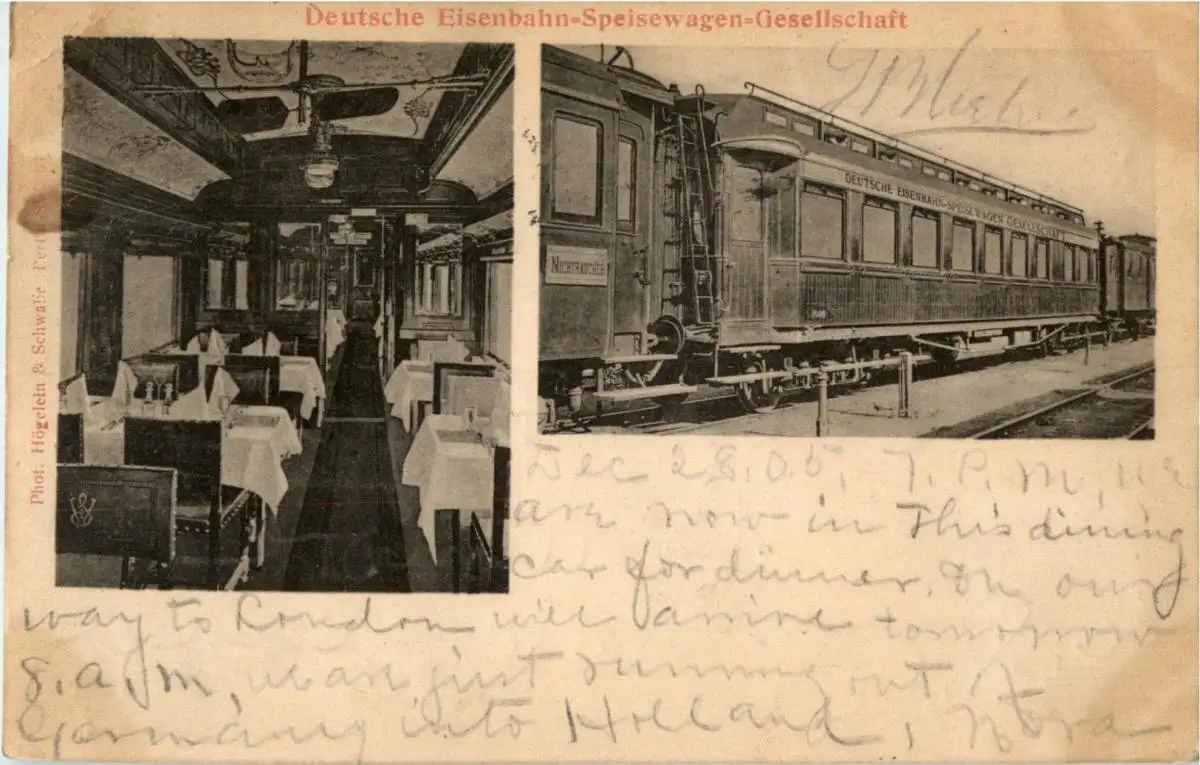 Deutsche Eisenbahn-Speisewagen-Gesellschaft
DEUTSCHE EISENBAHN-SPEISEWAGEN GESELLSCHAFT
NICHTRAUCHER
Phot. Högelein & Schwalie Berlin
Dec 28.05, 7. P. M, We
are now in This dining
car for dinner, On our
way to London will arrive tomorrow
8. a, m, we are just running out of
Germany into Holland, Nora